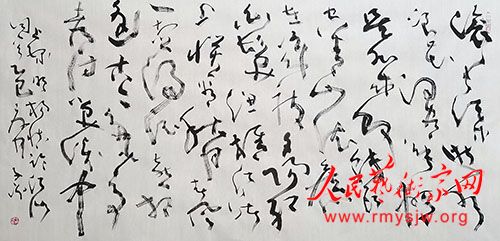 滚滚长江东逝水
浪花淘尽英雄
是非成败转头
空青山依旧
在几度夕阳
红白发渔樵江渚
上惯看秋月春风
一壶浊酒喜相
逢古今多少事
都付笑谈中
人民艺术家网
www.rmysjw.org